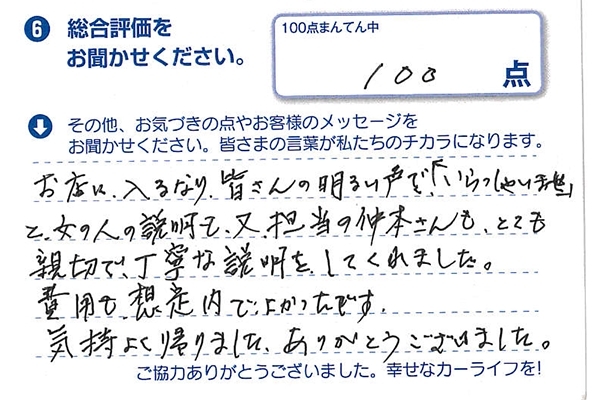 6 総合評価を
お聞かせください。
100点まんてん中
100 点
その他、お気づきの点やお客様のメッセージを
お聞かせください。皆さまの言葉が私たちのチカラになります。
お店に、入るなり、皆さんの明るい声で、「いらっしゃいませ」
と、女の人の説明も、又、担当の仲本さんも、とても
親切で、丁寧な説明を、してくれました。
費用も、想定内でよかったです。
気持よく帰りました、ありがとうございました。
ご協力ありがとうございました。幸せなカーライフを!